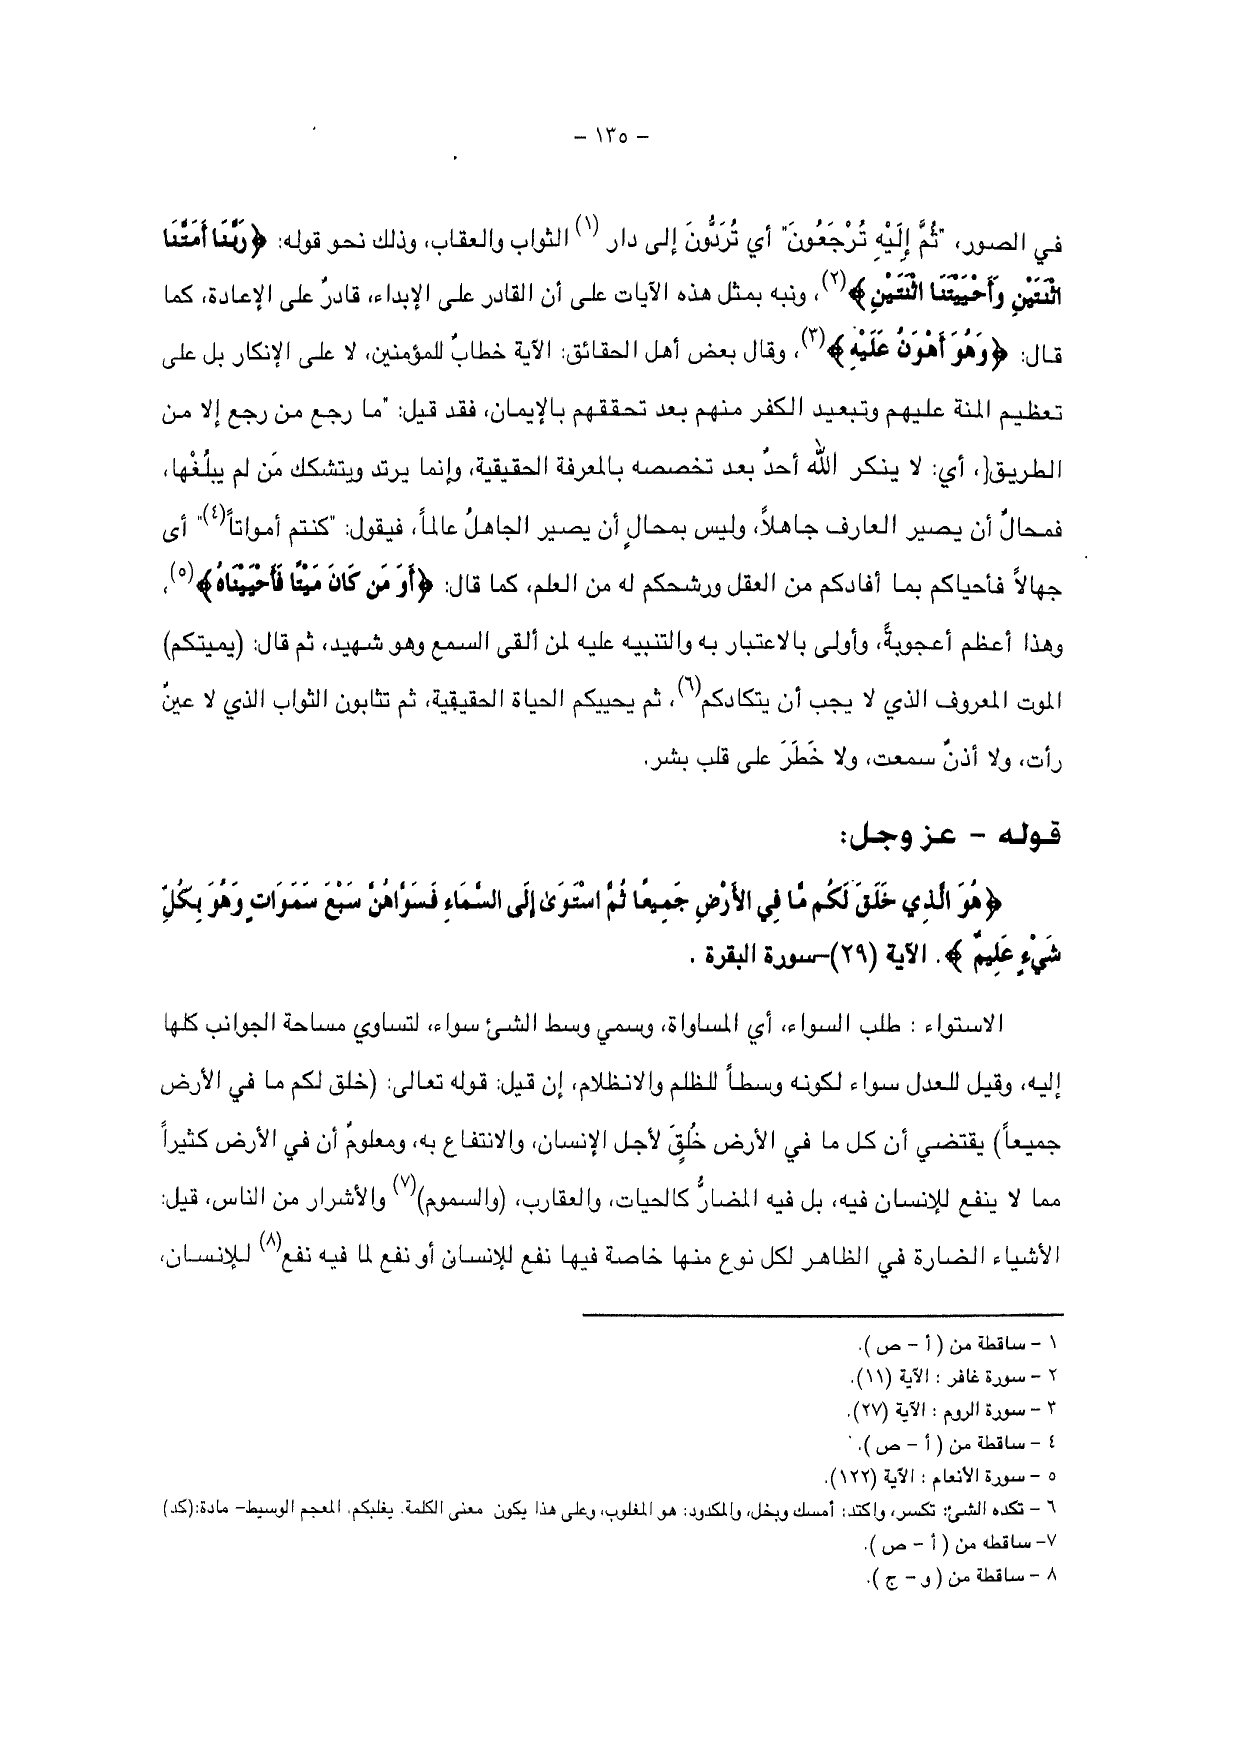 – ١٣٥ –
في الصور، "ثُمَّ إِلَيْهِ تُرْجَعُونَ" أي تُرَدُّونَ إلى دار (١) الثواب والعقاب، وذلك نحو قوله: ﴿رَبَّنَا أَمَتَّنَا
اثْنَتَيْنِ وَأَحْيَيْتَنَا اثْنَتَيْنِ﴾(٢)، ونبه بمثل هذه الآيات على أن القادر على الإبداء، قادرٌ على الإعادة، كما
قال: ﴿وَهُوَ أَهْوَنُ عَلَيْهِ﴾(٣)، وقال بعض أهل الحقائق: الآية خطابٌ للمؤمنين، لا على الإنكار بل على
تعظيم المنة عليهم وتبعيد الكفر منهم بعد تحققهم بالإيمان، فقد قيل: "ما رجع من رجع إلا من
الطريق{، أي: لا ينكر الله أحدٌ بعد تخصصه بالمعرفة الحقيقية، وإنما يرتد ويتشكك مَن لم يبلُغْها،
فمحالٌ أن يصير العارف جاهلاً، وليس بمحالٍ أن يصير الجاهلُ عالماً، فيقول: "كنتم أمواتاً(٤)" أي
جهالاً فأحياكم بما أفادكم من العقل ورشحكم له من العلم، كما قال: ﴿أَوَ مَن كَانَ مَيْتًا فَأَحْيَيْنَاهُ﴾(٥)،
وهذا أعظم أعجوبةً، وأولى بالاعتبار به والتنبيه عليه لمن ألقى السمع وهو شهيد، ثم قال: (يميتكم)
الموت المعروف الذي لا يجب أن يتكادكم(٦)، ثم يحييكم الحياة الحقيقية، ثم تثابون الثواب الذي لا عينٌ
رأت، ولا أذنٌ سمعت، ولا خَطَرَ على قلب بشر.
قوله – عز وجل:
﴿هُوَ الَّذِي خَلَقَ لَكُم مَّا فِي الأَرْضِ جَمِيعًا ثُمَّ اسْتَوَىٰ إِلَى السَّمَاءِ فَسَوَّاهُنَّ سَبْعَ سَمَوَاتٍ وَهُوَ بِكُلِّ
شَيْءٍ عَلِيمٌ﴾. الآية (٢٩)–سورة البقرة .
الاستواء : طلب السواء، أي المساواة، وسمي وسط الشئ سواء، لتساوي مساحة الجوانب كلها
إليه، وقيل للعدل سواء لكونه وسطاً للظلم والانظلام، إن قيل: قوله تعالى: (خلق لكم ما في الأرض
جميعاً) يقتضي أن كل ما في الأرض خُلِقَ لأجل الإنسان، والانتفاع به، ومعلومٌ أن في الأرض كثيراً
مما لا ينفع للإنسان فيه، بل فيه المضارُّ كالحيات، والعقارب، (والسموم)(٧) والأشرار من الناس، قيل:
الأشياء الضارة في الظاهر لكل نوع منها خاصة فيها نفع للإنسان أو نفع لما فيه نفع(٨) للإنسان،
١ – ساقطة من ( أ – ص ).
٢ – سورة غافر : الآية (١١).
٣ – سورة الروم : الآية (٢٧).
٤ – ساقطة من ( أ – ص ).
٥ – سورة الأنعام : الآية (١٢٢).
٦ – تكده الشئ: تكسر، واكتد: أمسك وبخل، والمكدود: هو المغلوب، وعلى هذا يكون معنى الكلمة. يغلبكم. المعجم الوسيط– مادة:(كد)
٧– ساقطه من ( أ – ص ).
٨ – ساقطة من ( و – ج ).